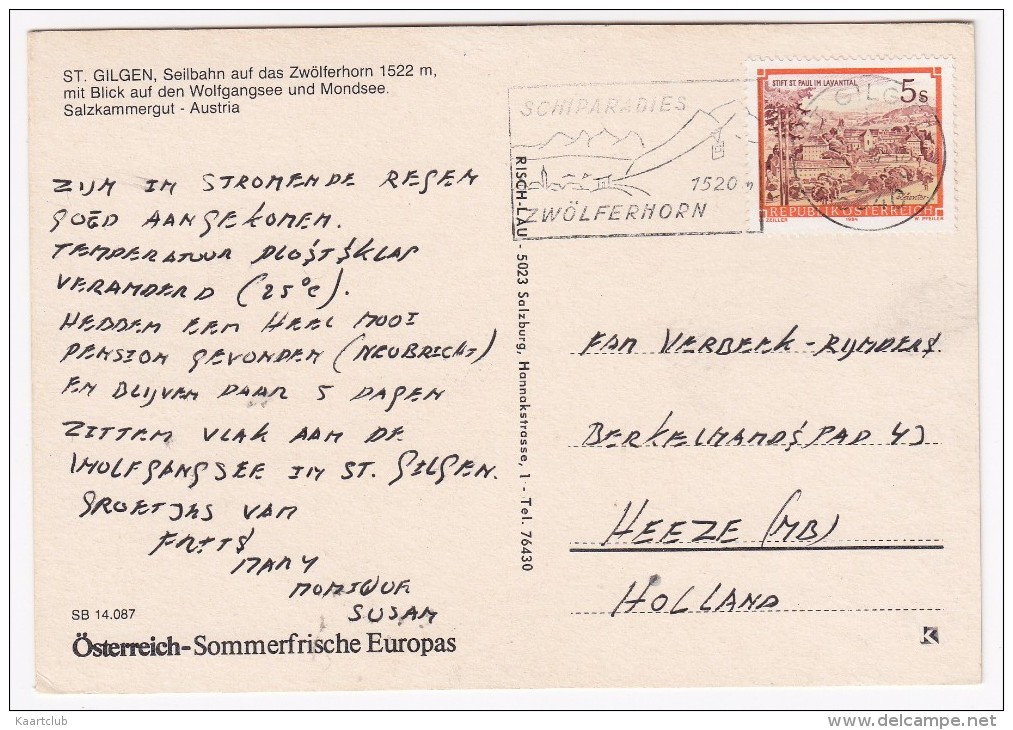 ST. GILGEN, Seilbahn auf das Zwölferhorn 1522 m,
mit Blick auf den Wolfgangsee und Mondsee.
Salzkammergut - Austria
ZIJN IN STROMENDE REGEN
GOED AANGEKOMEN.
TEMPERATUUR PLOTSKLAP
VERANDERD (25°C).
HEBBEN EEN HEEL MOOI
PENSION GEVONDEN (NEUBRICHT)
EN BLIJVEN DAAR 5 DAGEN
ZITTEN VLAK AAN DE
WOLFGANGSEE IN ST. GILGEN.
GROETJES VAN
FRITS
MARY
MONIQUE
SUSAN
SB 14.087
Österreich-Sommerfrische Europas
RISCH-LAU - 5023 Salzburg, Hannakstrasse, 1 - Tel. 76430
SCHIPARADIES
1520 m
ZWÖLFERHORN
STIFT ST. PAUL IM LAVANTTAL
5s
GILG
REPUBLIK ÖSTERREICH
ZEILLER
W. PFEILER
FAM VERBEEK-RIJNDERS
BERKELMANDSPAD 43
HEEZE (NB)
HOLLAND
K
Kaartclub
www.delcampe.net